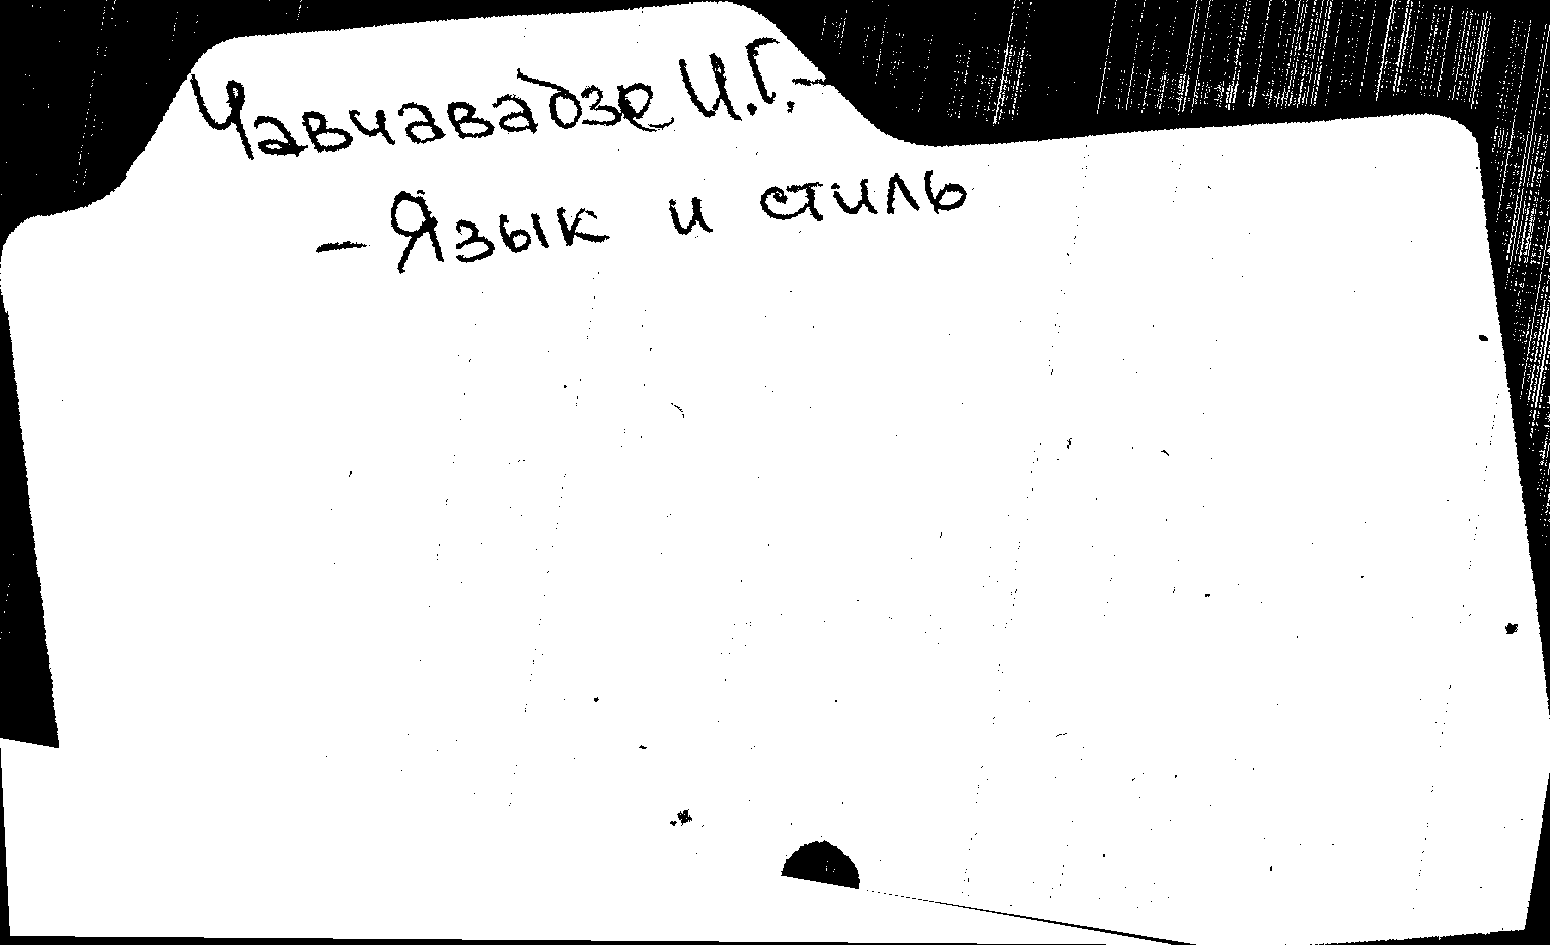 Чавчавадзе И.Г.-
- Язык и стиль